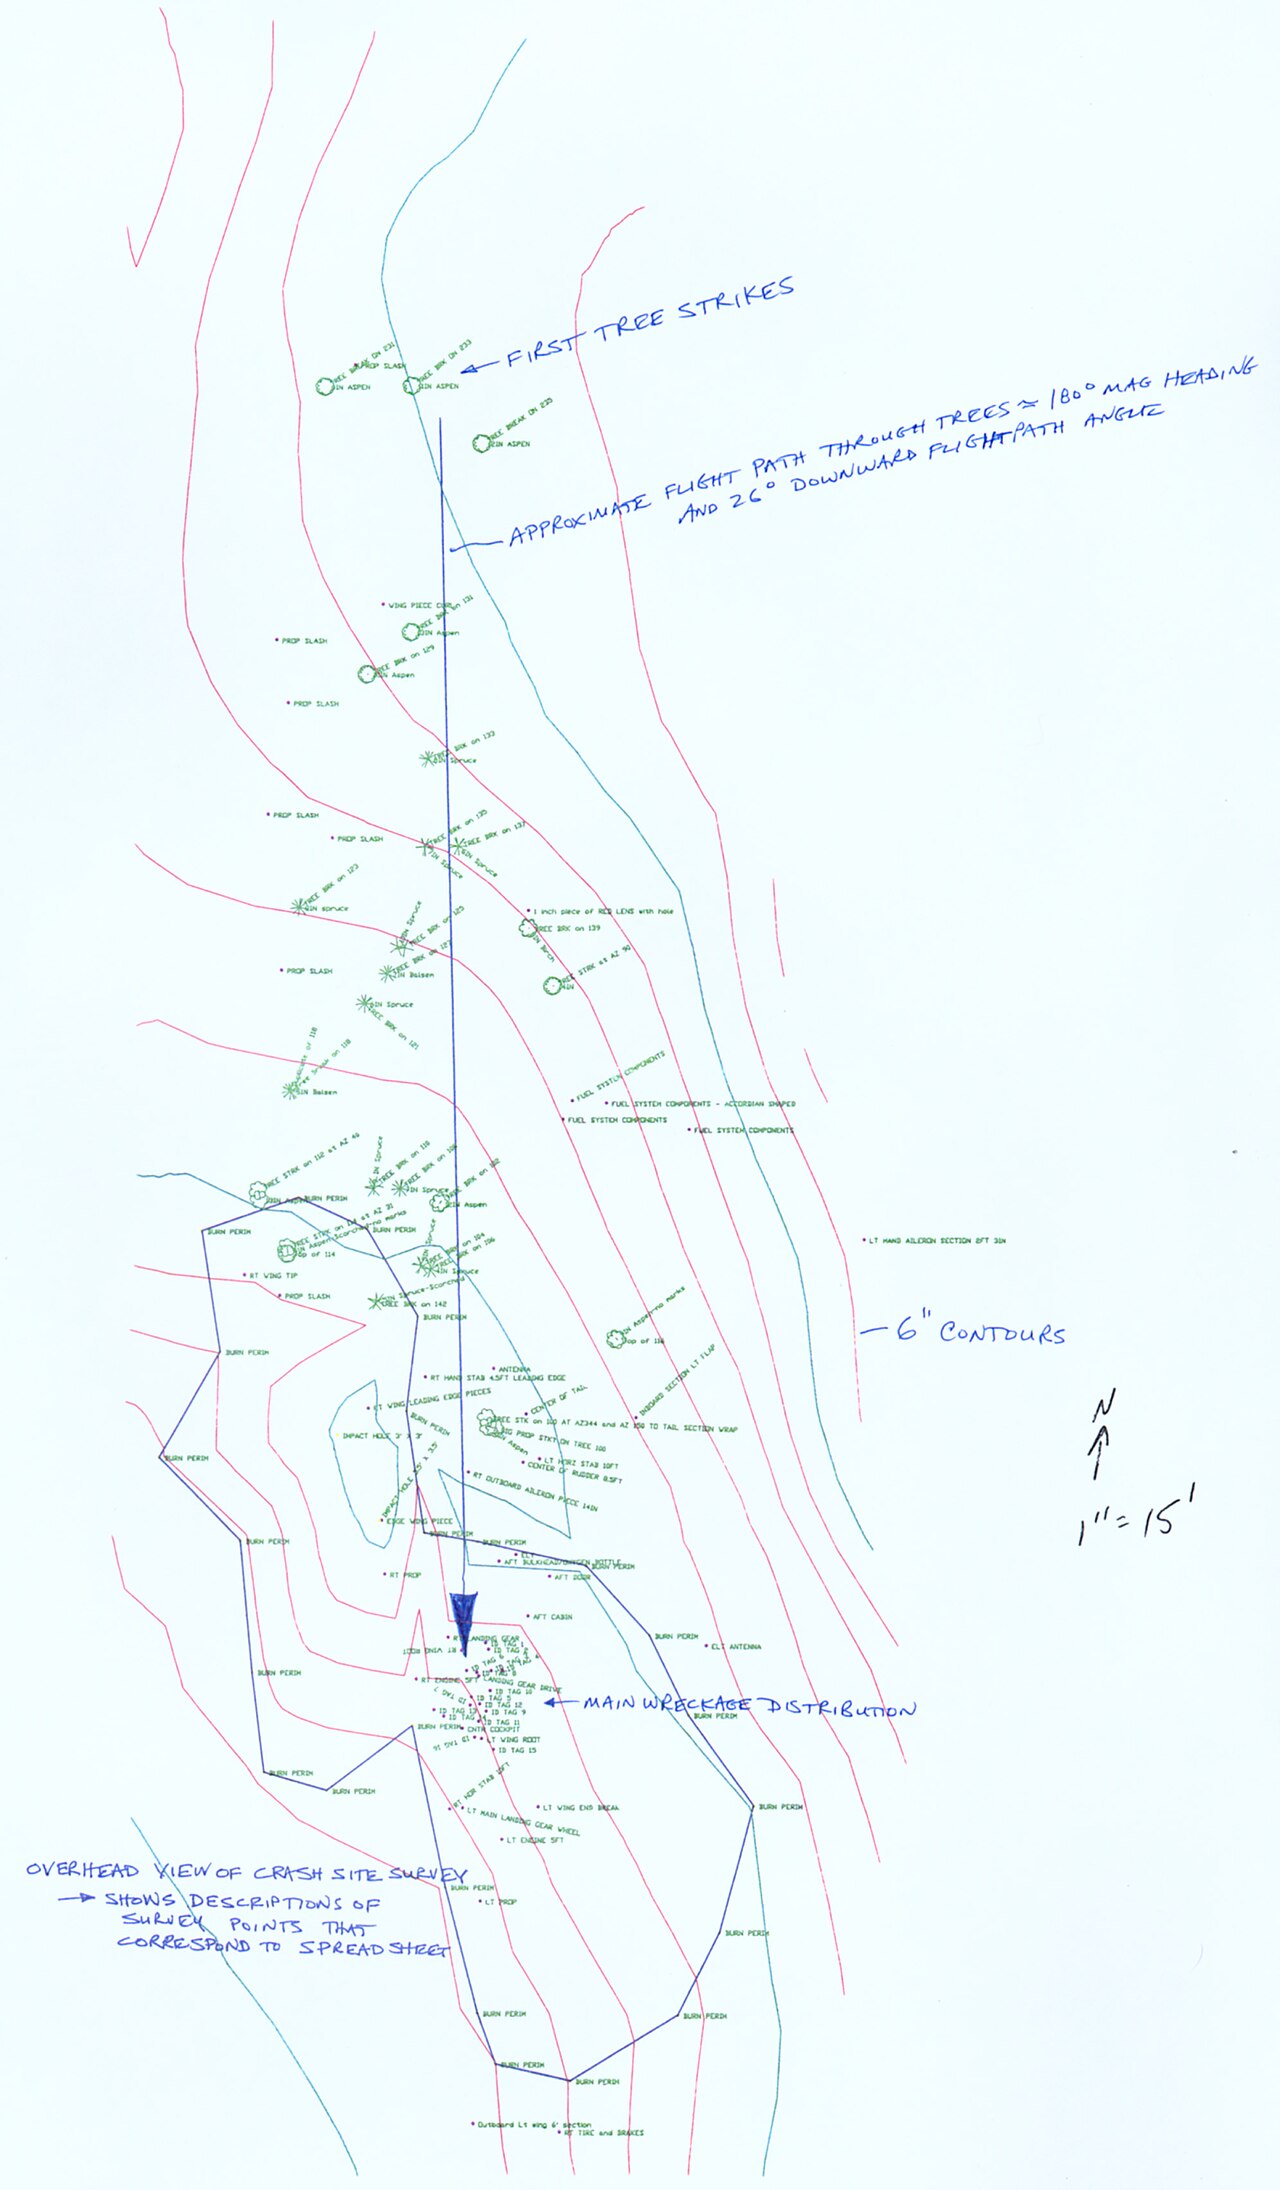 FIRST TREE STRIKES
TREE BREAK ON 231
PROP SLASH
TREE BRK ON 233
IN ASPEN
IN ASPEN
TREE BREAK ON 235
IN ASPEN
APPROXIMATE FLIGHT PATH THROUGH TREES ≈ 180° MAG HEADING
AND 26° DOWNWARD FLIGHTPATH ANGLE
WING PIECE
TREE BRK on 131
IN Aspen
PROP SLASH
TREE BRK on 129
IN Aspen
PROP SLASH
TREE BRK on 133
IN Spruce
PROP SLASH
TREE BRK on 135
TREE BRK on 137
PROP SLASH
IN Spruce
IN Spruce
TREE BRK on 123
IN spruce
1 inch piece of RED LENS with hole
TREE BRK on 139
IN Birch
IN Spruce
TREE BRK on 125
TREE BRK on 127
IN Balsen
PROP SLASH
TREE STRK at AZ 90
IN Spruce
TREE BRK on 121
Tree Break on 118
IN Balsen
FUEL SYSTEM COMPONENTS
FUEL SYSTEM COMPONENTS - ACCORDIAN SHAPED
FUEL SYSTEM COMPONENTS
FUEL SYSTEM COMPONENTS
TREE STRK on 112 at AZ 40
IN Spruce
TREE BRK on 110
TREE BRK on 108
IN Spruce
TREE BRK on 102
IN Aspen
BURN PERIM
BURN PERIM
BURN PERIM
TREE STRK on 114 at AZ 31
IN Aspen Scorched-no marks
Top of 114
TREE BRK on 104
TREE BRK on 106
IN Spruce
LT HAND AILERON SECTION 2FT 3IN
RT WING TIP
PROP SLASH
IN Spruce-Scorched
TREE BRK on 142
BURN PERIM
IN Aspen-no marks
Top of 116
6" CONTOURS
BURN PERIM
ANTENNA
RT HAND STAB 4.5FT LEADING EDGE
INBOARD SECTION LT FLAP
LT WING LEADING EDGE PIECES
CENTER OF TAIL
BURN PERIM
TREE STK on 100 AT AZ344 and AZ 150 TO TAIL SECTION WRAP
BIG PROP STKT ON TREE 100
IN Aspen
IMPACT HOLE 3' X 3'
N
BURN PERIM
LT HORZ STAB 10FT
CENTER OF RUDDER 8.5FT
RT OUTBOARD AILERON PIECE 14IN
1" = 15'
EDGE WING PIECE
BURN PERIM
BURN PERIM
BURN PERIM
ELT
AFT BULKHEAD/OXYGEN BOTTLE
BURN PERIM
RT PROP
AFT DOOR
AFT CABIN
RT LANDING GEAR
RT WING ROOT
ID TAG 1
ID TAG 2
BURN PERIM
ELT ANTENNA
BURN PERIM
RT ENGINE 5FT
LANDING GEAR DRIVE
ID TAG 10
ID TAG 5
ID TAG 12
ID TAG 9
ID TAG 13
ID TAG 11
MAIN WRECKAGE DISTRIBUTION
BURN PERIM
BURN PERIM
CNTR COCKPIT
LT WING ROOT
ID TAG 16
ID TAG 15
BURN PERIM
BURN PERIM
RT HOR STAB 10FT
LT MAIN LANDING GEAR WHEEL
LT WING END BREAK
BURN PERIM
LT ENGINE 5FT
OVERHEAD VIEW OF CRASH SITE SURVEY
→ SHOWS DESCRIPTIONS OF
SURVEY POINTS THAT
CORRESPOND TO SPREADSHEET
BURN PERIM
LT PROP
BURN PERIM
BURN PERIM
BURN PERIM
BURN PERIM
BURN PERIM
Outboard Lt wing 6' section
RT TIRE and BRAKES